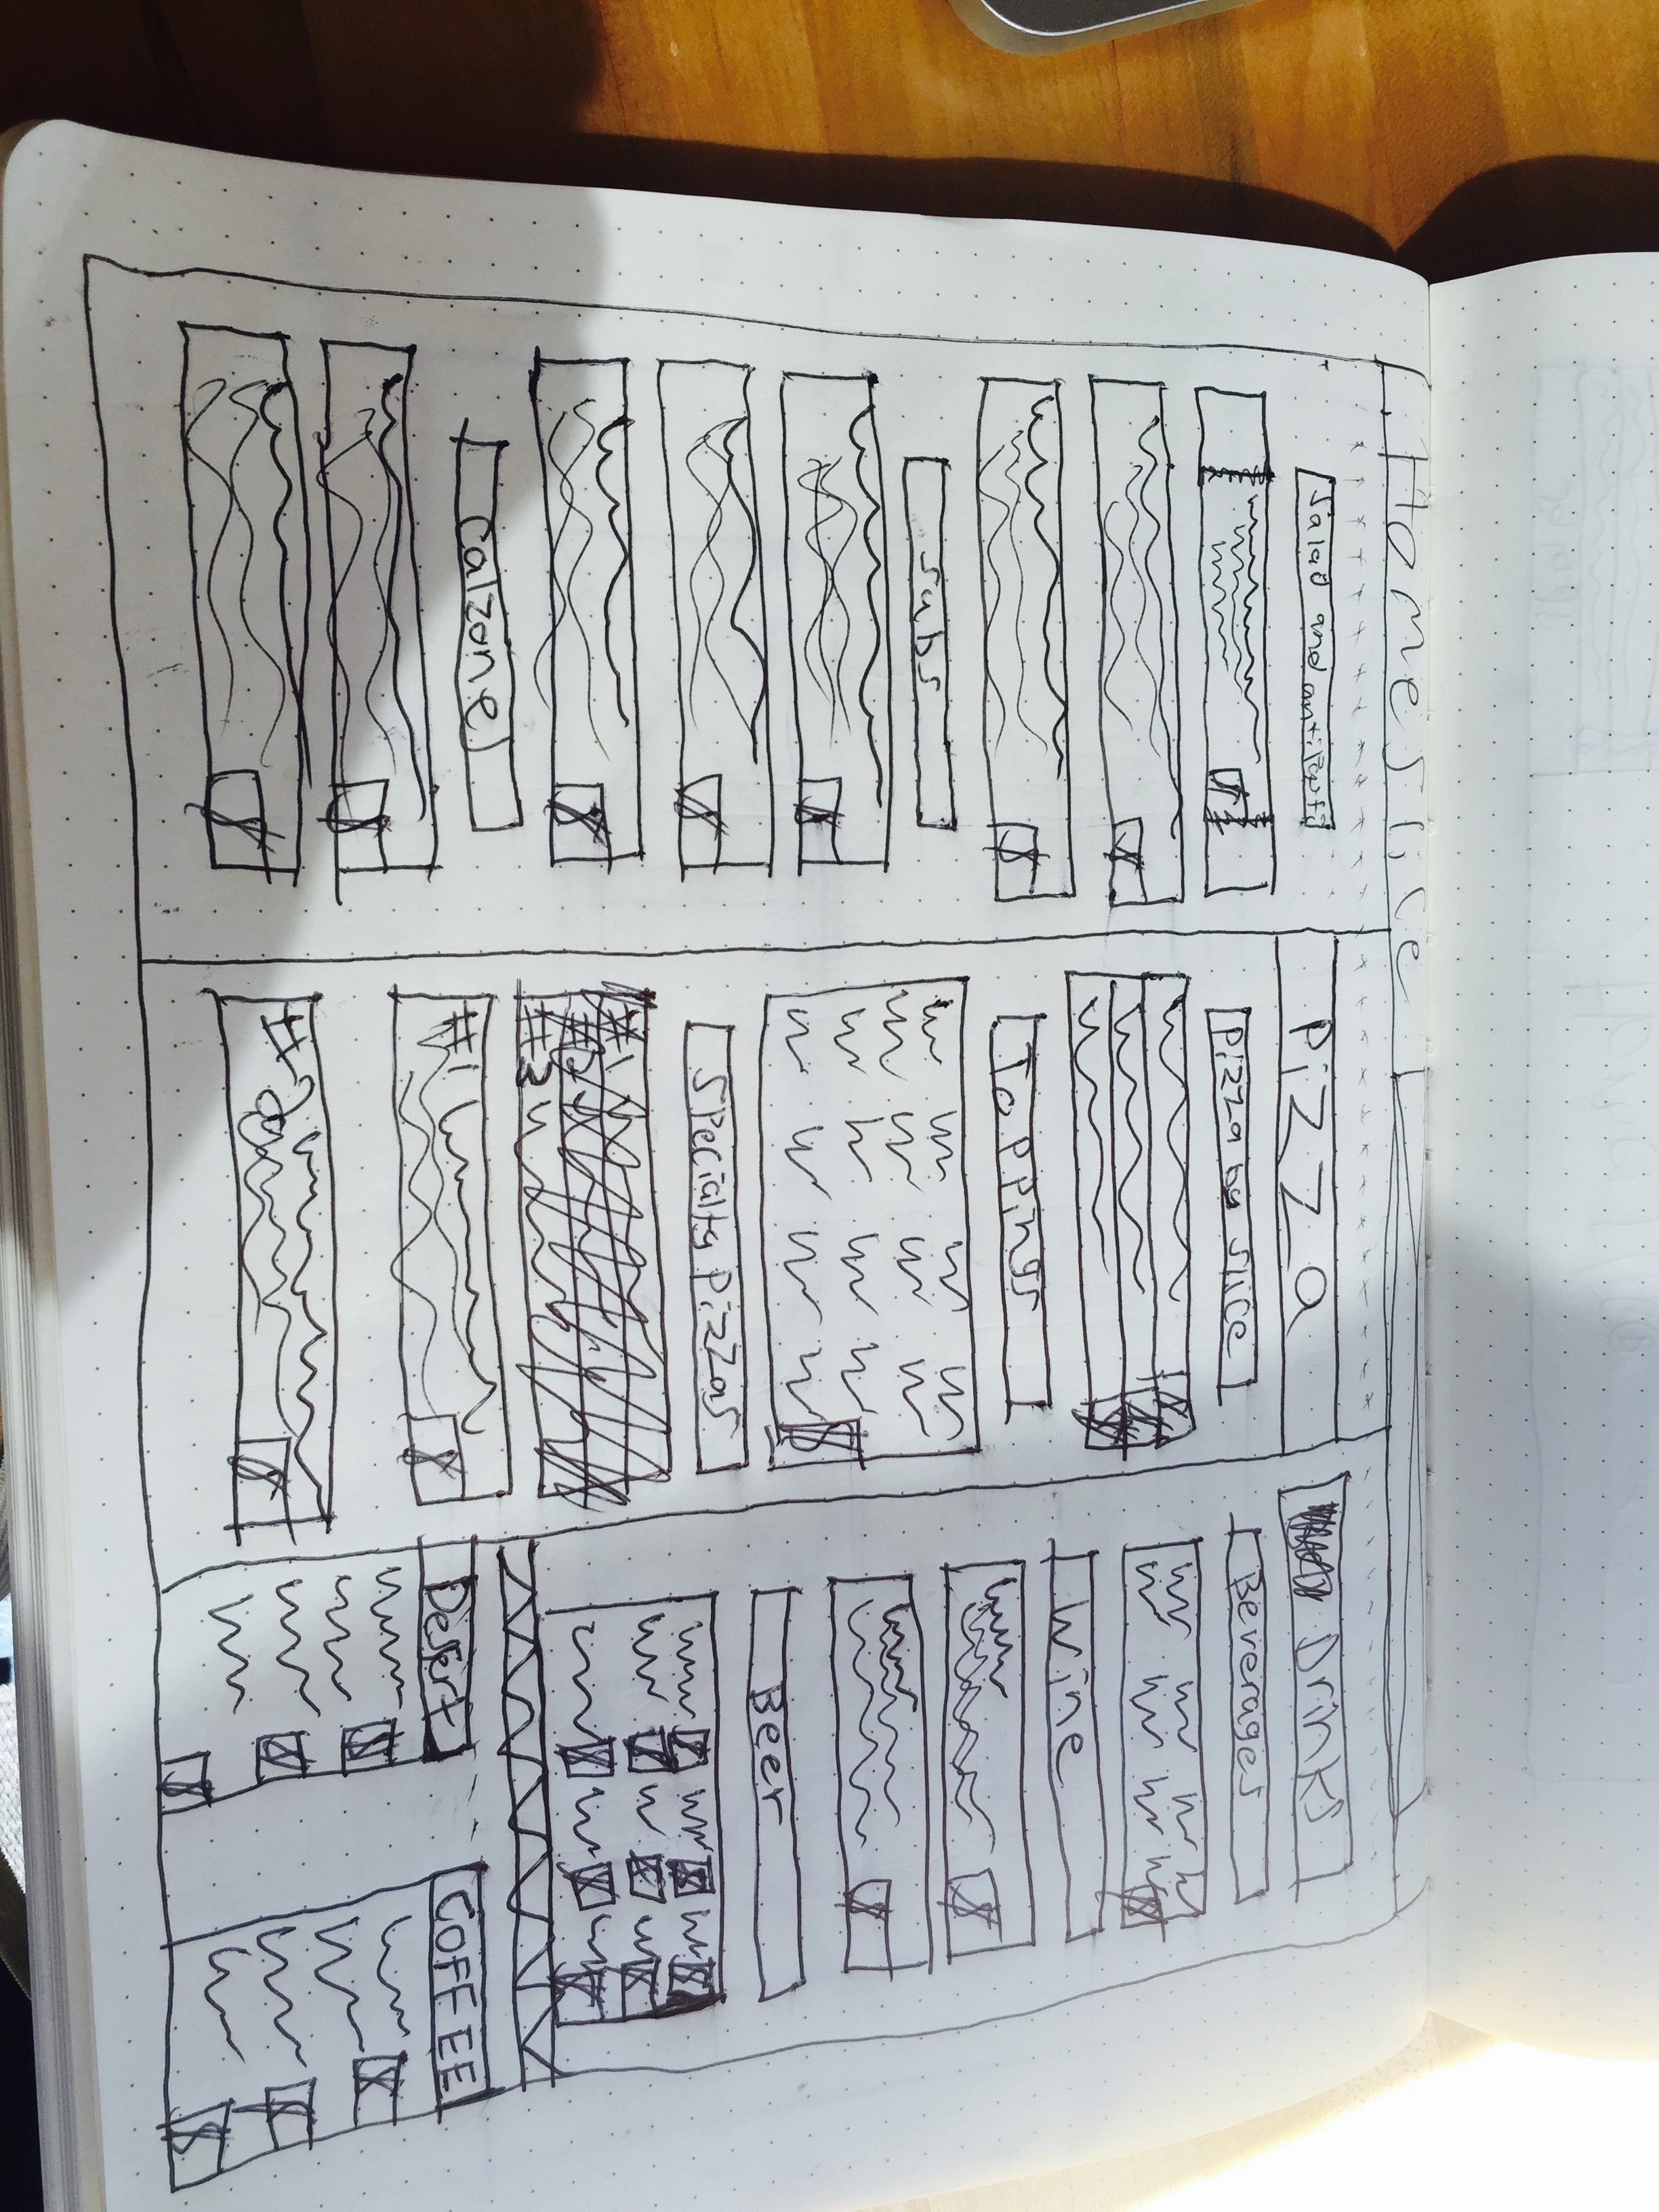 Homeslice
Salad and antipasti
Subs
Calzone
PIZZa
Pizza by slice
Toppings
Specialty Pizzas
#1
#2
#3
#1
#2
Drinks
Beverages
Wine
Beer
Dessert
COFFEE